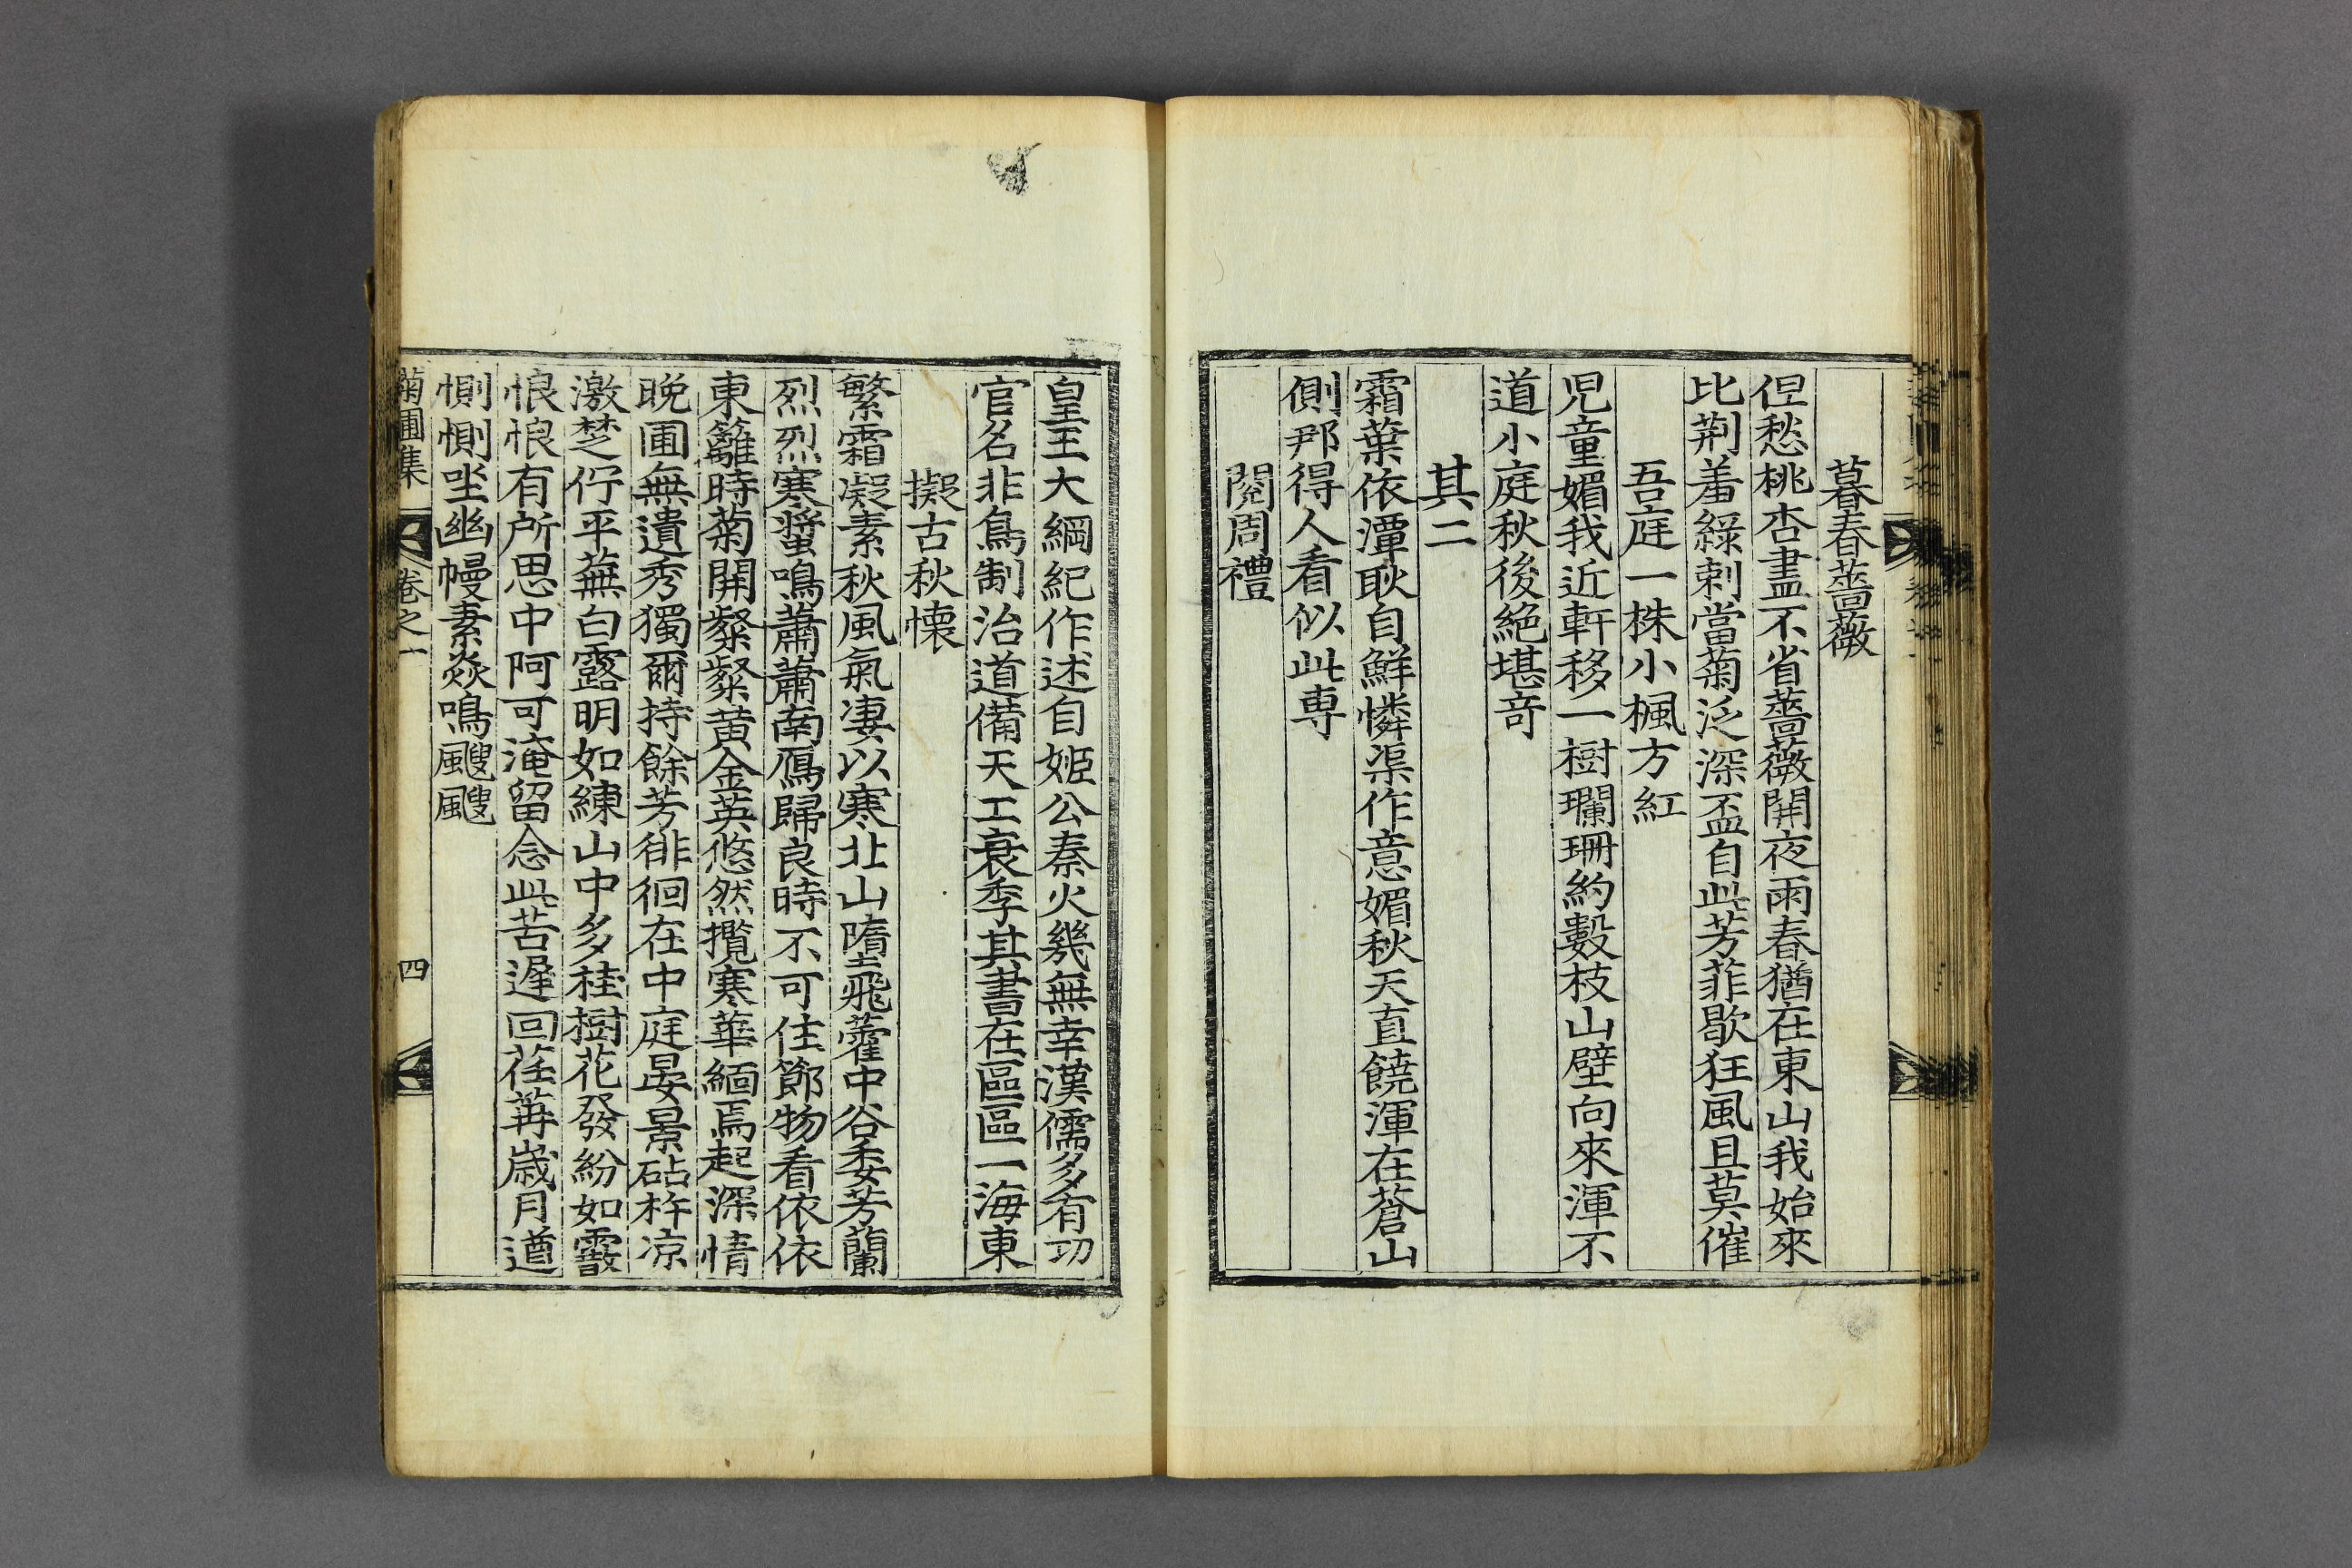 暮春薔薇
但愁桃杏盡不省薔薇開夜雨春猶在東山我始來
比荆羞綠刺當菊泛深盃自此芳菲歇狂風且莫催
吾庭一株小楓方紅
児童媚我近軒移一樹斕珊約數枝山壁向來渾不
道小庭秋後絶堪竒
其二
霜葉依潭耿自鮮憐渠作意媚秋天直饒渾在蒼山
側那得人看似此専
閱周禮
皇王大綱紀作述自姬公秦火幾無幸漢儒多有功
官名非鳥制治道備天工衰季其書在區區一海東
擬古秋懷
繁霜凝素秋風氣凄以寒北山隋飛藿中谷委芳蘭
烈烈寒螿鳴蕭蕭南鴈歸良時不可住節物看依依
東籬時菊開粲粲黄金英悠然攬寒華緬焉起深情
晩圃無遺秀獨爾持餘芳徘徊在中庭晏景砧杵凉
激楚佇平蕪白露明如練山中多桂樹花發紛如霰
悢悢有所思中阿可淹留念此苦遲回荏苒歳月遒
惻惻坐幽幔素焱鳴颼颼
菊圃集 卷之一 四